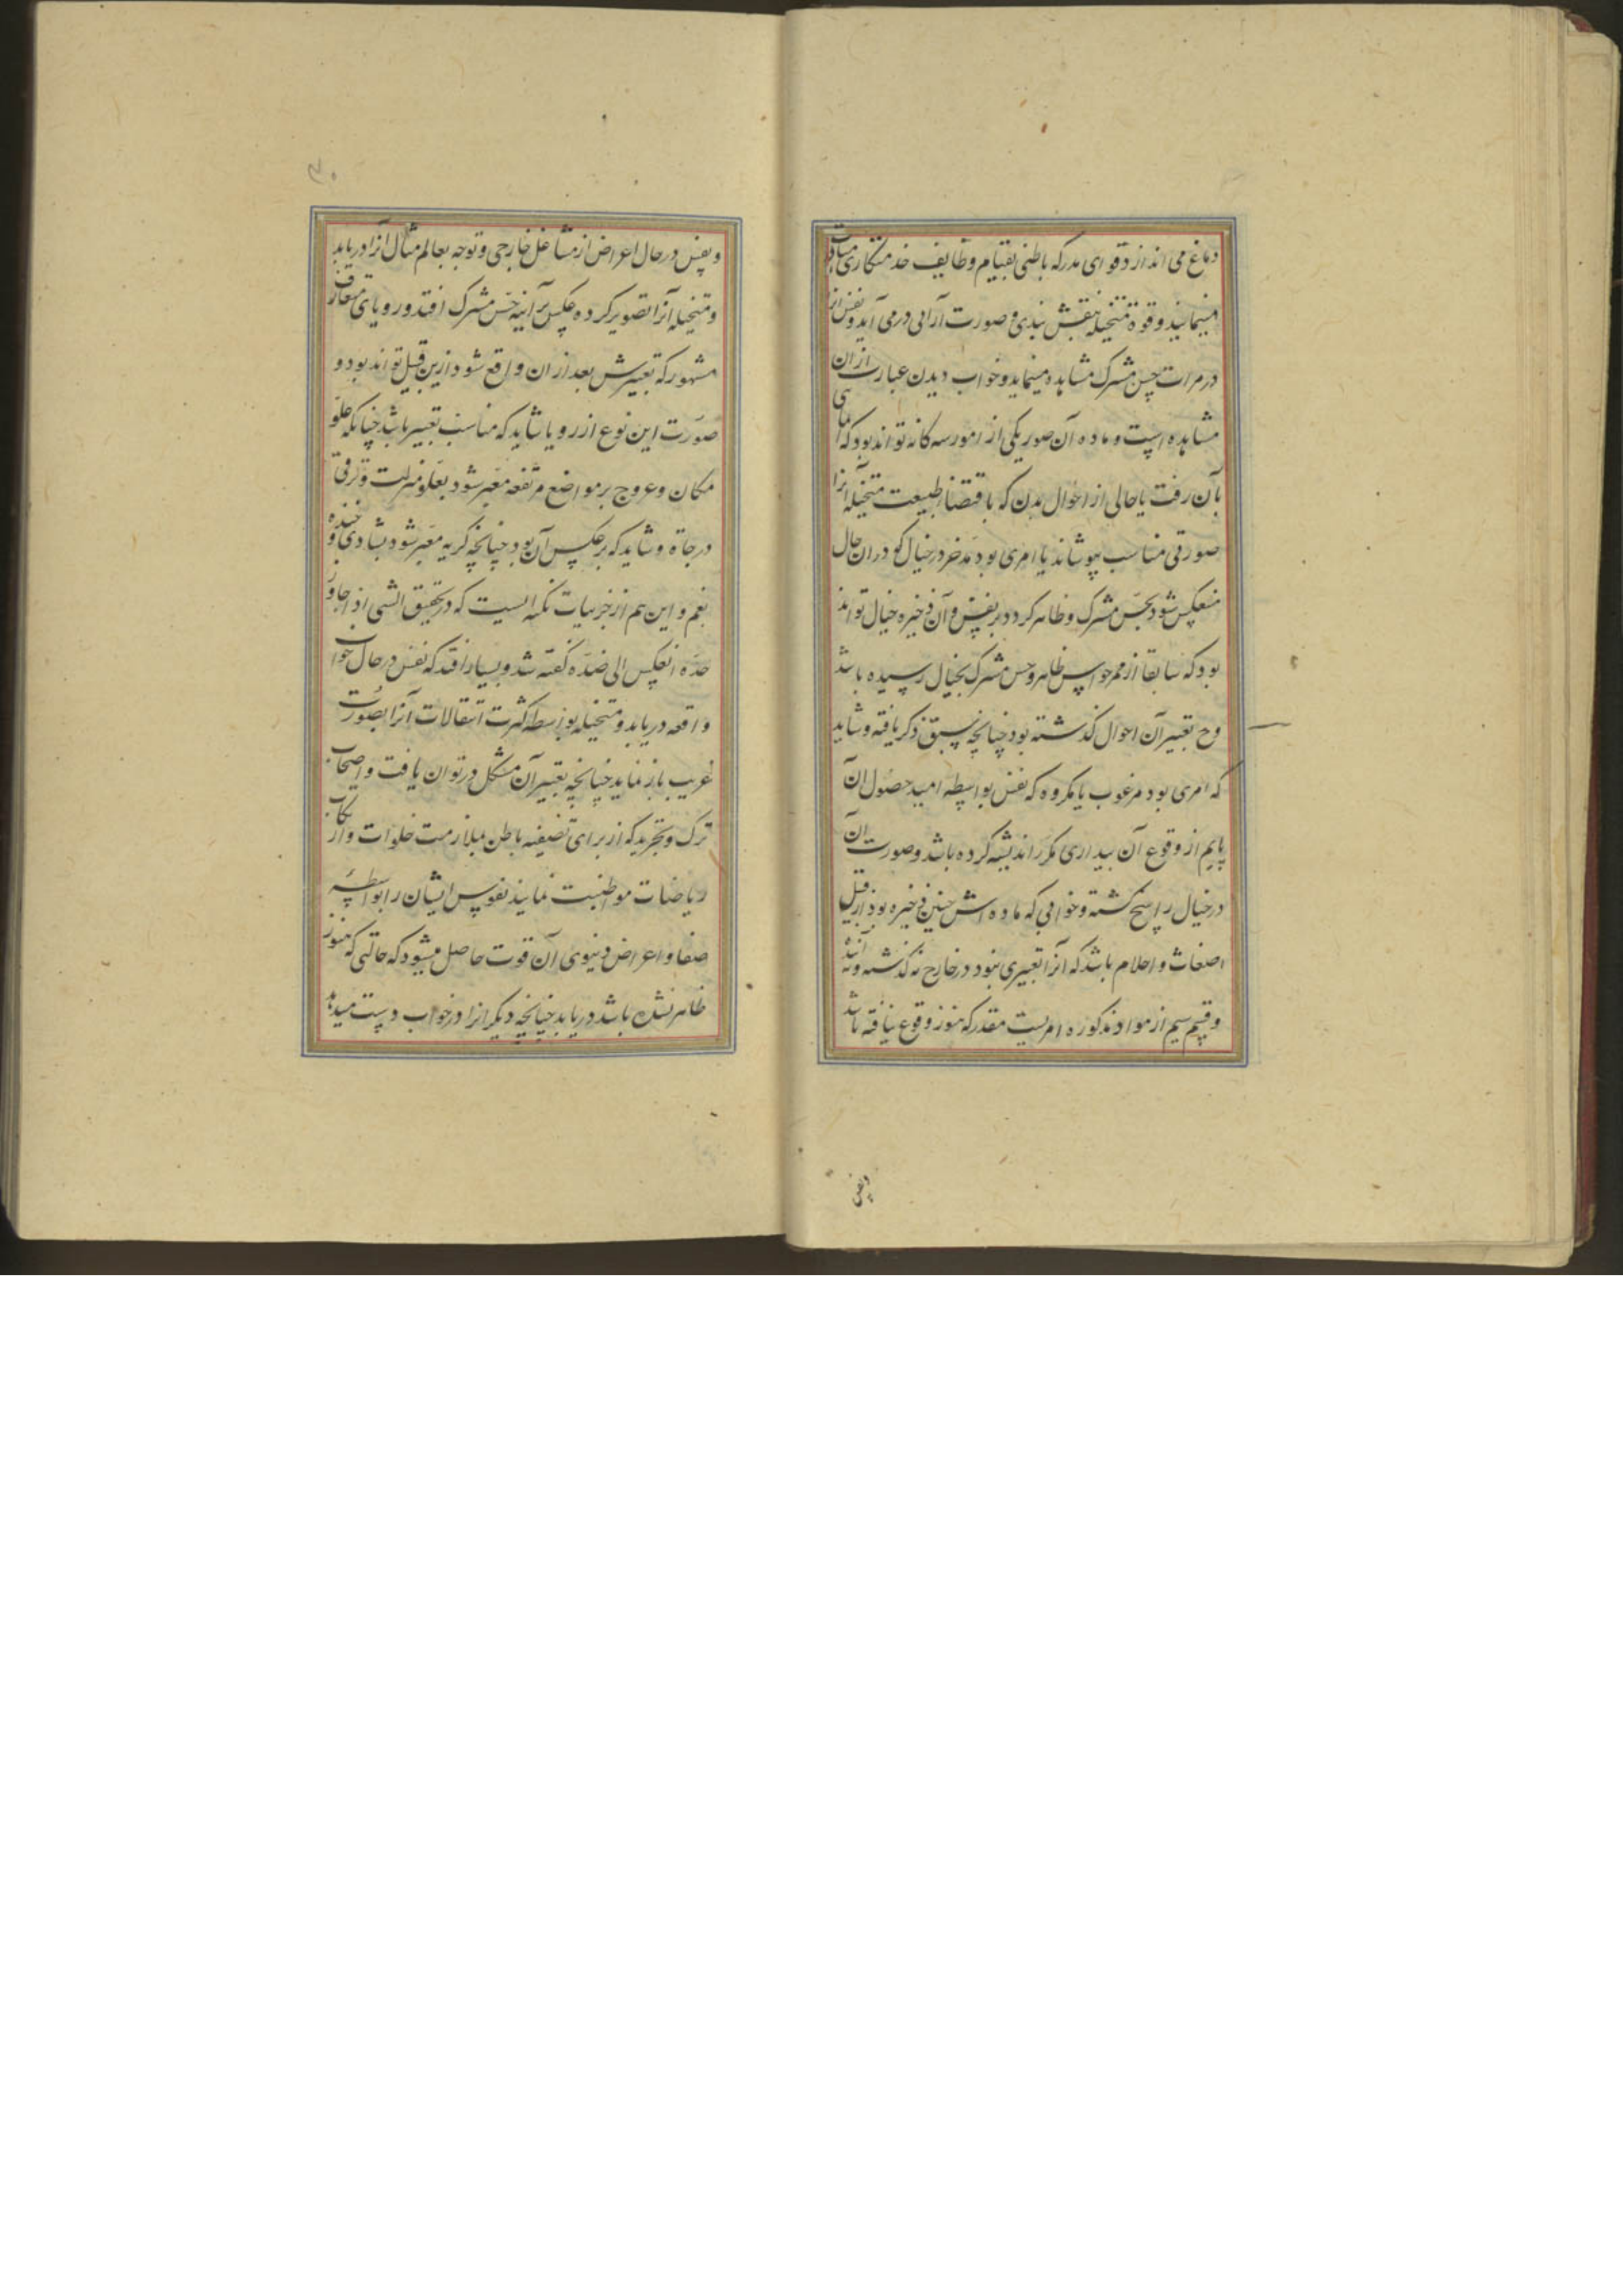 دماغ می اندازد قوای مدرکه باطنی بقیام وظایف خدمتکاری
مینمایند و قوة متخیله بنقش بندی و صورت آرائی درمی آید و نفس انرا
در مرات حس مشترک مشاهده مینماید و خواب دیدن عبارت ازان
مشاهده است و ماده آن صور یکی از امور سه کانه تواند بود که
بآن رفت یا حالی از احوال بدن که باقتضاء طبیعت متخیله آنرا
صورتی مناسب بپوشاند یا امری بود مدخر در خیال کو دران حال
منعکس شود بحس مشترک و ظاهر کردد بر نفس و آن ذخیره خیال تواند
بود که سابقا از ممر حواس ظاهر و حس مشترک بخیال رسیده باشد
وح تعبیر آن احوال کذشته بود چنانچه سبق ذکر یافته و شاید
که امری بود مرغوب یا مکروه که نفس بواسطه امید حصول آن
یا بیم از وقوع آن ببیداری مکرر اندیشه کرده باشد و صورت آن
در خیال راسخ کشته و خوابی که ماده اش چنین ذخیره بود از قبیل
اضغاث و احلام باشد که آنرا تعبیری نبود در خارج نه کذشته و نه آینده
و قسم سیم از مواد مذکوره امریست مقدر که هنوز وقوع نیافته باشد
ونفس
۳۰
و نفس در حال اعراض از مشاغل خارجی و توجه بعالم مثال آنرا دریابد
و متخیله آنرا تصویر کرده عکس بر آینه حس مشترک افتد و رویای متعارف
مشهور که تعبیرش بعد ازان واقع شود ازین قبیل تواند بود و
صورت این نوع از رویا شاید که مناسب تعبیر باشد چنانکه علو
مکان و عروج بر مواضع مرتفعه معبر شود بعلو منزلت و ترقی
درجاة و شاید که بر عکس آن بود چنانچه کریه معبر شود بشادی و خنده
بغم و این هم از جزییات نکته ایست که در تحقیق الشی اذا جاوز
حدّه انعکس الی ضدّه کفته شد و بسیار افتد که نفس در حال خواب
واقعه دریابد و متخیله بواسطه کثرت انتقالات آنرا بصورت
غریب باز نماید چنانچه تعبیر آن مشکل در توان یافت و اصحاب
ترک و تجرید که از برای تصفیه باطن بملازمت خلوات و ارتکاب
ریاضات مواظبت نمایند نفوس ایشان را بواسطه
صفا و اعراض دنیوی آن قوت حاصل میشود که حالتی که هنوز
ظاهر نشده باشد دریابد چنانچه دیگر انرا در خواب دست میدهد